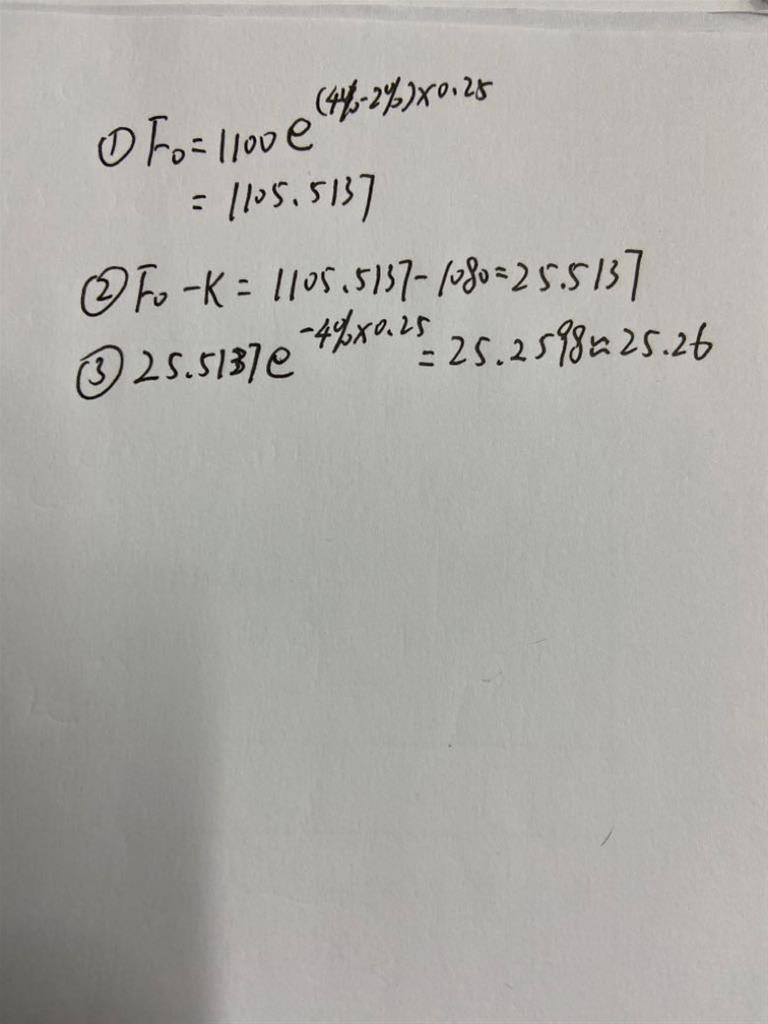 ① F₀ = 1100 e^(4%-2%)×0.25
= 1105.5137
② F₀ - K = 1105.5137 - 1080 = 25.5137
③ 25.5137 e^-4%×0.25 = 25.2598 ≈ 25.26